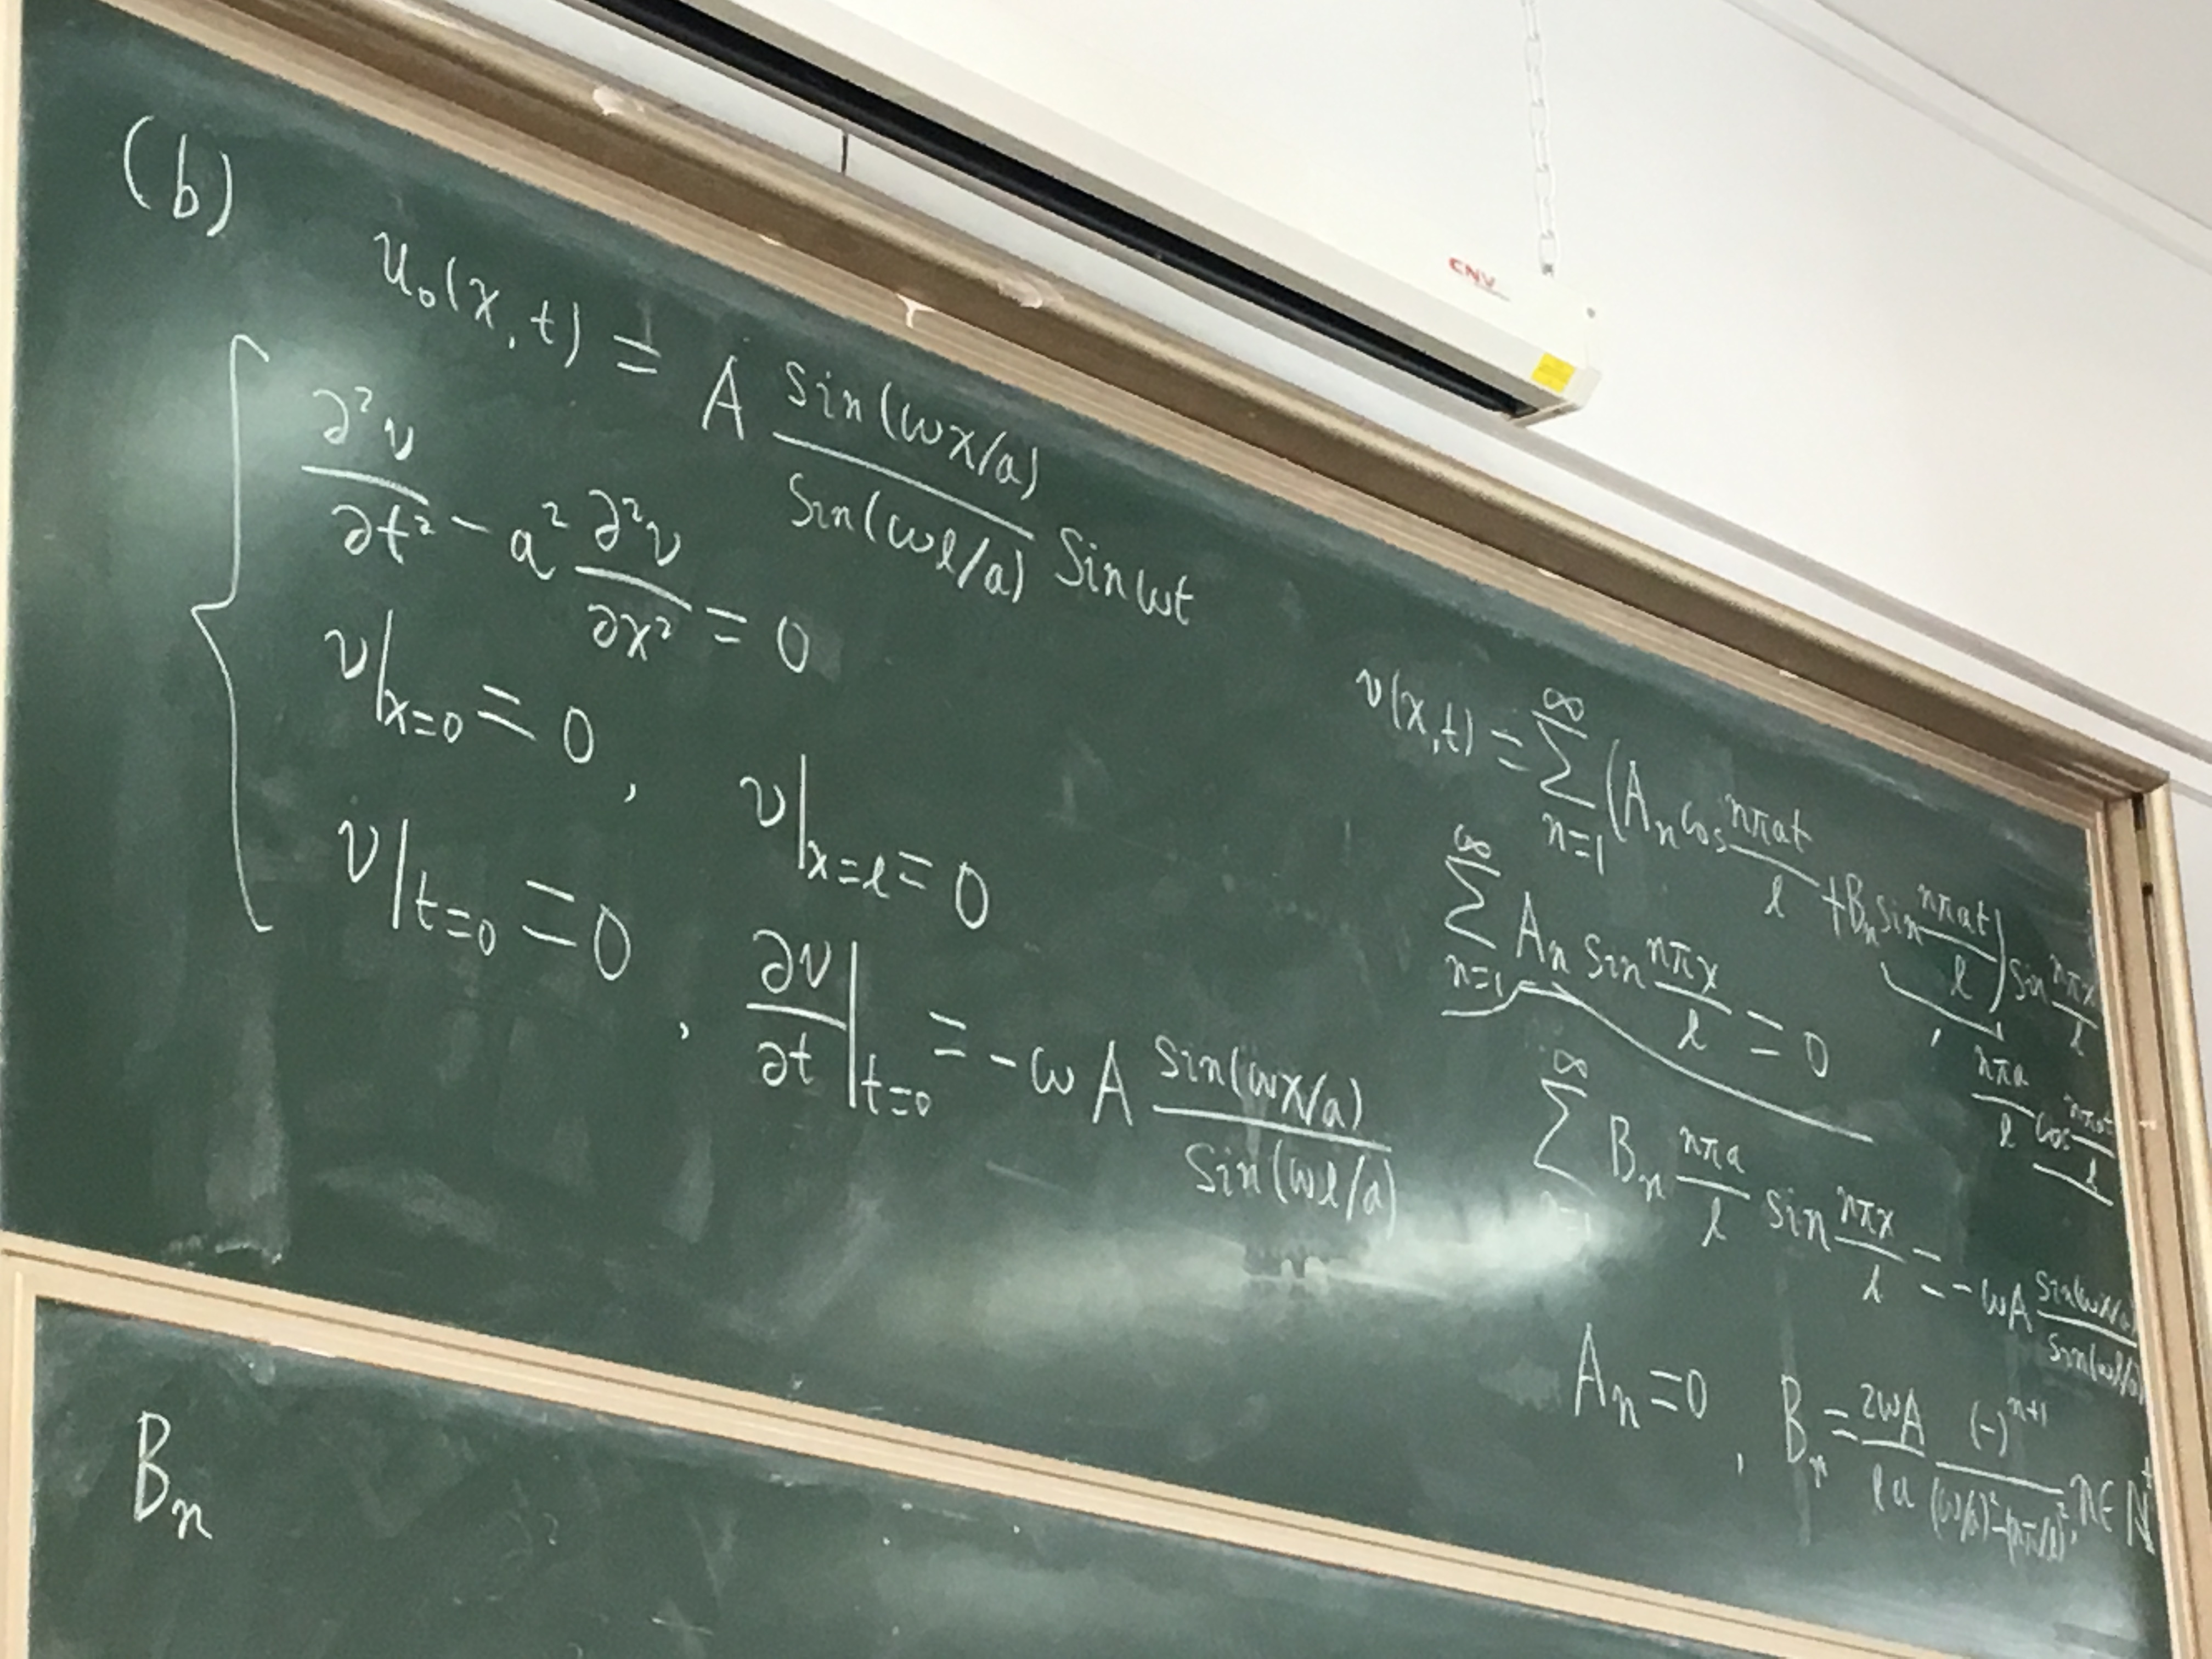 CNV
(b)
u₀(x,t) = A sin(ωx/a) / sin(ωl/a) sin ωt
∂²v/∂t² - a² ∂²v/∂x² = 0
v|x=0 = 0, v|x=l = 0
v|t=0 = 0, ∂v/∂t|t=0 = -ωA sin(ωx/a) / sin(ωl/a)
v(x,t) = ∑n=1^∞ (Aₙ cos nπat/l + Bₙ sin nπat/l) sin nπx/l
nπa/l cos nπat/l
∑n=1^∞ Aₙ sin nπx/l = 0
∑n=1^∞ Bₙ nπa/l sin nπx/l = -ωA sin(ωx/a) / sin(ωl/a)
Aₙ = 0, Bₙ = 2ωA/la (-)ⁿ⁺¹ / (ω/a)²-(nπ/l)², n∈N⁺
Bₙ